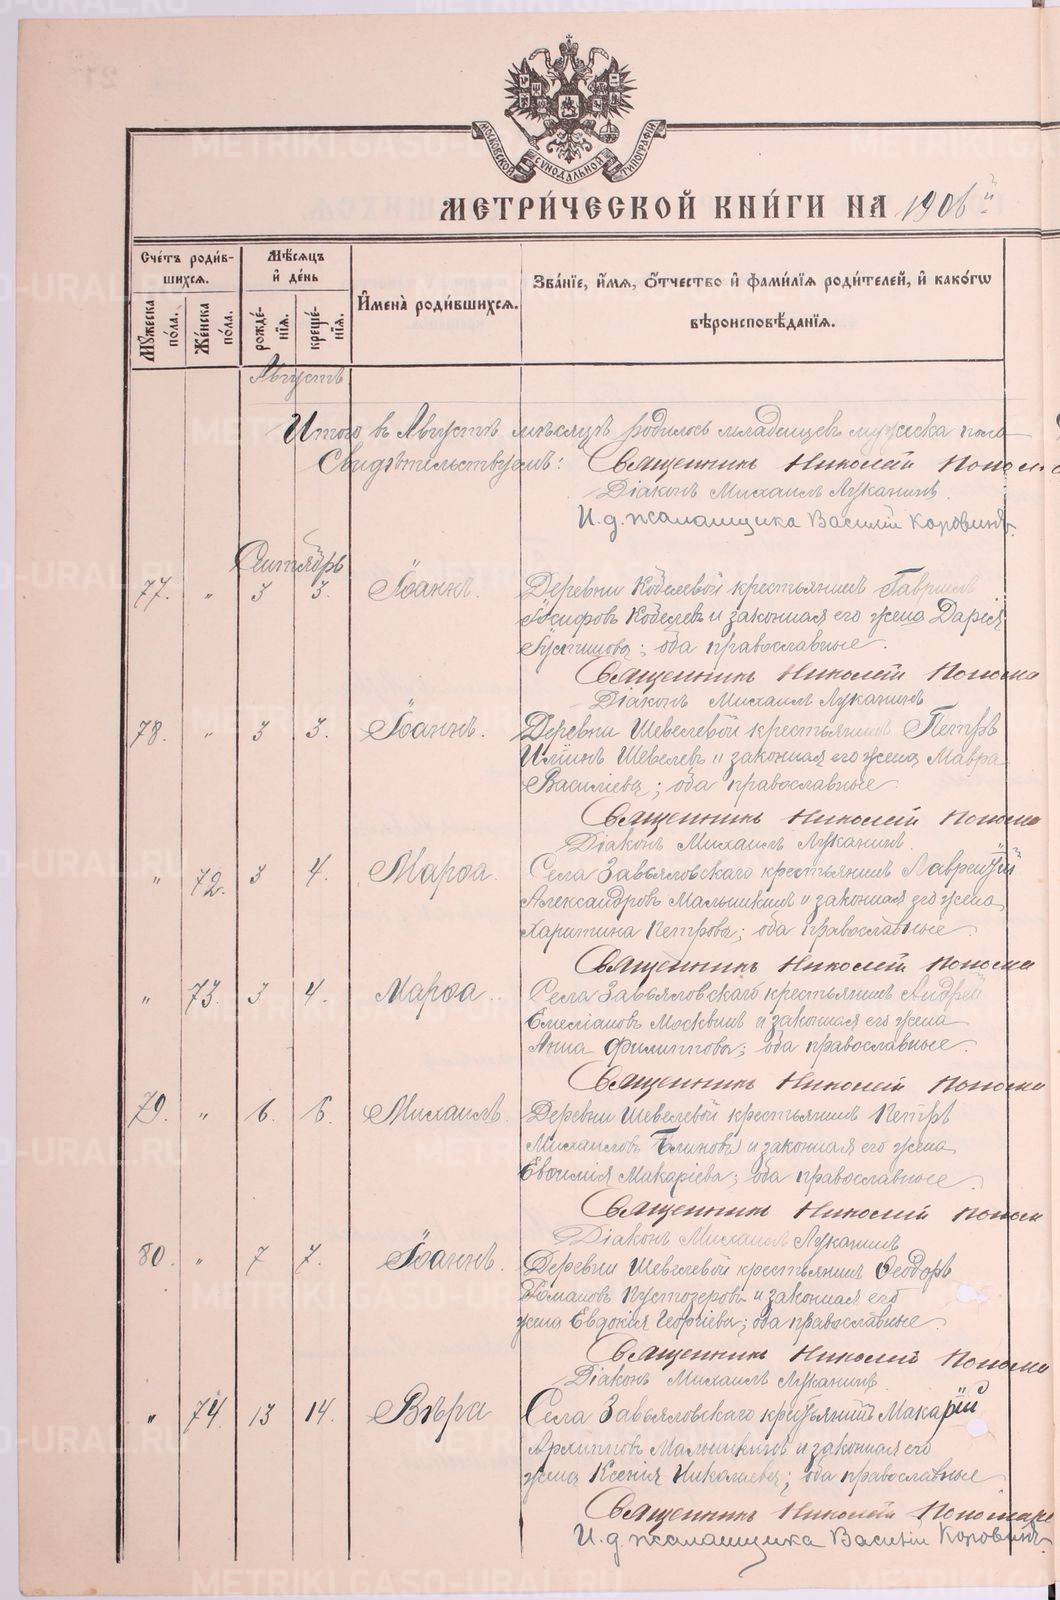 МОСКОВСКОЙ СѴНОДАЛЬНОЙ ТИПОГРАФІИ
МЕТРИ́ЧЕСКОЙ КНИ́ГИ НА 1906й
Сче́тъ роди́в-
шихсѧ.
Мѣ́сѧцъ
и҆ де́нь
И҆мена̀ роди́вшихсѧ.
Зва́нїе, и҆́мѧ, ѻ҆́тчество и҆ фами́лїѧ роди́телей, и҆ како́гѡ
вѣроисповѣ́данїѧ.
Мꙋ́жеска по́ла.
Же́нска по́ла.
рожде́-
нїѧ.
креще́-
нїѧ.
Августъ
Итого въ Августѣ мѣсяцѣ родилось младенцевъ мужеска пола
Свидѣтельствуемъ: Священникъ Николай Поном
Діаконъ Михаилъ Луканинъ.
И. д. псаломщика Василій Коровинъ.
Сентябрь
77. " 3 3. Іоаннъ. Деревни Кобелевой крестьянинъ Гавріилъ
Іосифовъ Кобелевъ и законная его жена Дарія
Іустинова; оба православные.
Священникъ Николай Понома
Діаконъ Михаилъ Луканинъ
78. " 3 3. Іоаннъ. Деревни Шевелевой крестьянинъ Петръ
Ильинъ Шевелевъ и законная его жена Мавра
Василіева; оба православные.
Священникъ Николай Понома
Діаконъ Михаилъ Луканинъ.
" 72. 3 4. Марѳа. Села Завьяловскаго крестьянинъ Лаврентій
Александровъ Малышкинъ и законная его жена
Харитина Петрова; оба православные.
Священникъ Николай Понома
" 73. 3 4. Марѳа. Села Завьяловскаго крестьянинъ Андрей
Емеліановъ Москвинъ и законная его жена
Анна Филиппова; оба православные.
Священникъ Николай Понома
79. " 6. 6. Михаилъ. Деревни Шевелевой крестьянинъ Петръ
Михаиловъ Блиновъ и законная его жена
Евѳимія Макаріева; оба православные.
Священникъ Николай Поном
Діаконъ Михаилъ Луканинъ
80. " 7 7. Іоаннъ. Деревни Шевелевой крестьянинъ Ѳеодоръ
Романовъ Пустозеровъ и законная его
жена Евдокія Георгіева; оба православные.
Священникъ Николай Понома
Діаконъ Михаилъ Луканинъ.
" 74. 13 14. Вѣра Села Завьяловскаго крестьянинъ Макарій
Архипповъ Малышкинъ и законная его
жена Ксенія Николаева; оба православные
Священникъ Николай Пономаре
И. д. псаломщика Василій Коровинъ.